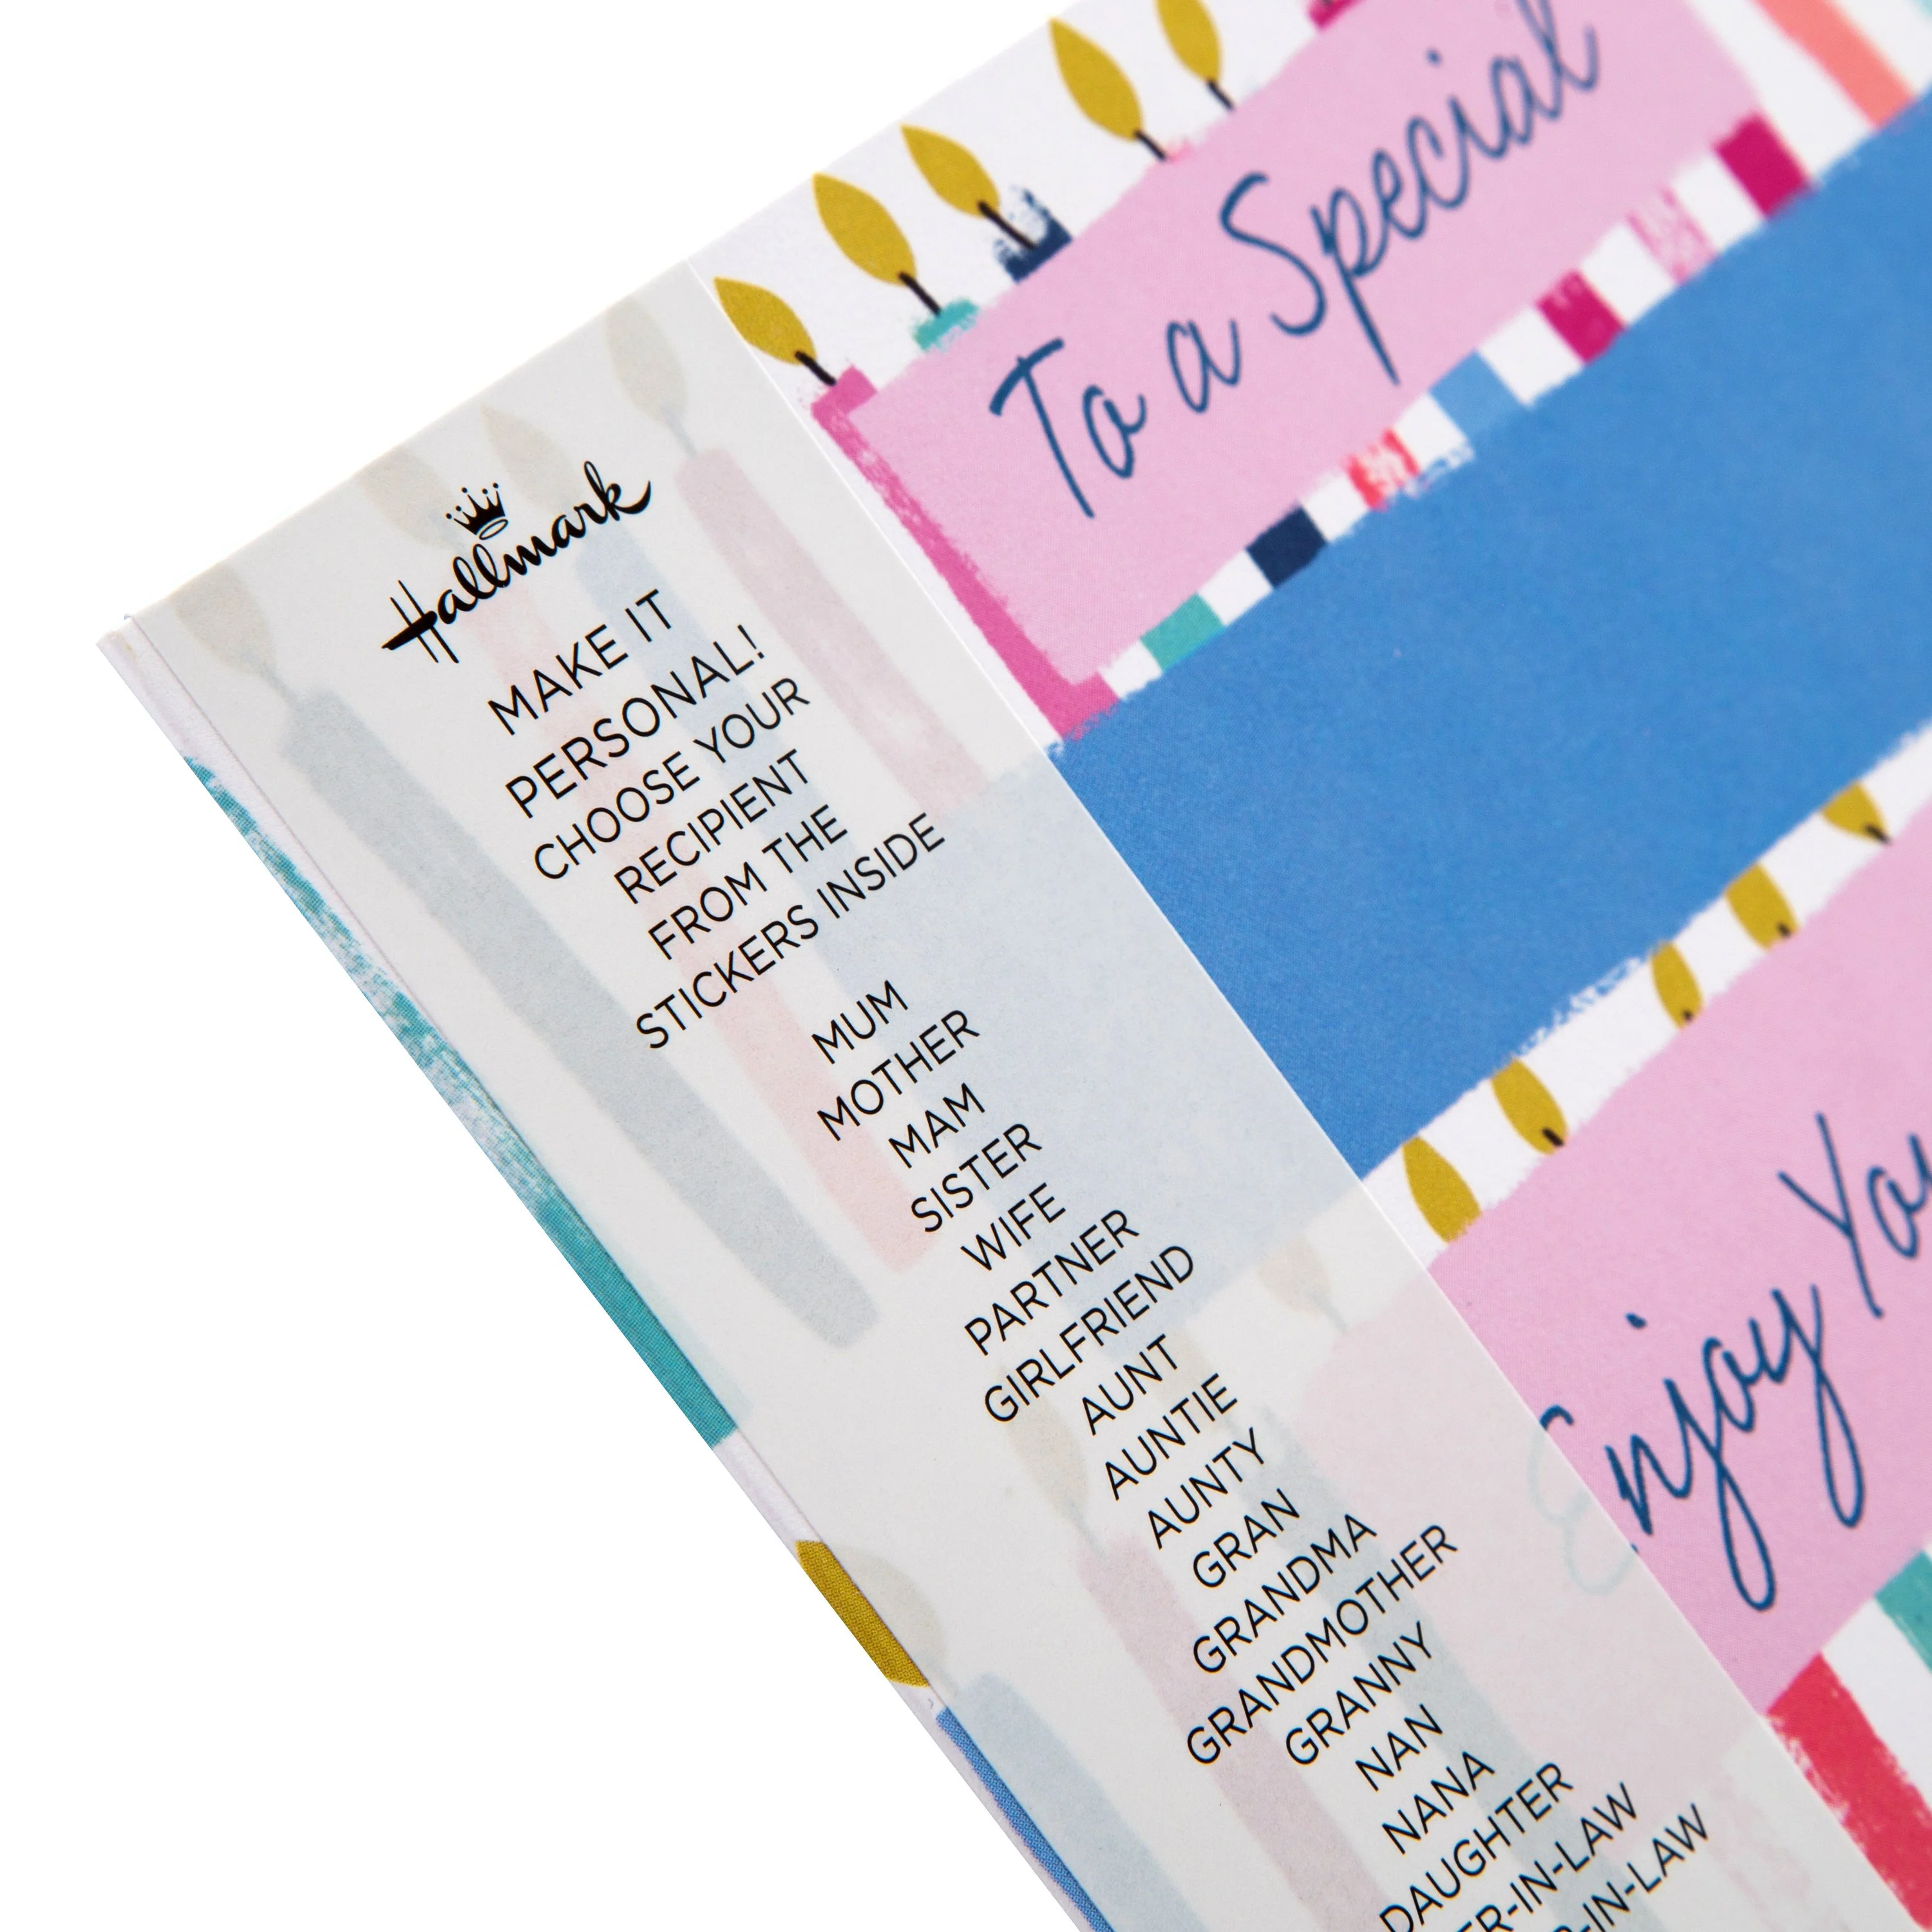 Hallmark
MAKE IT
PERSONAL!
CHOOSE YOUR
RECIPIENT
FROM THE
STICKERS INSIDE
MUM
MOTHER
MAM
SISTER
WIFE
PARTNER
GIRLFRIEND
AUNT
AUNTIE
AUNTY
GRAN
GRANDMA
GRANDMOTHER
GRANNY
NAN
NANA
DAUGHTER
To a Special
Enjoy